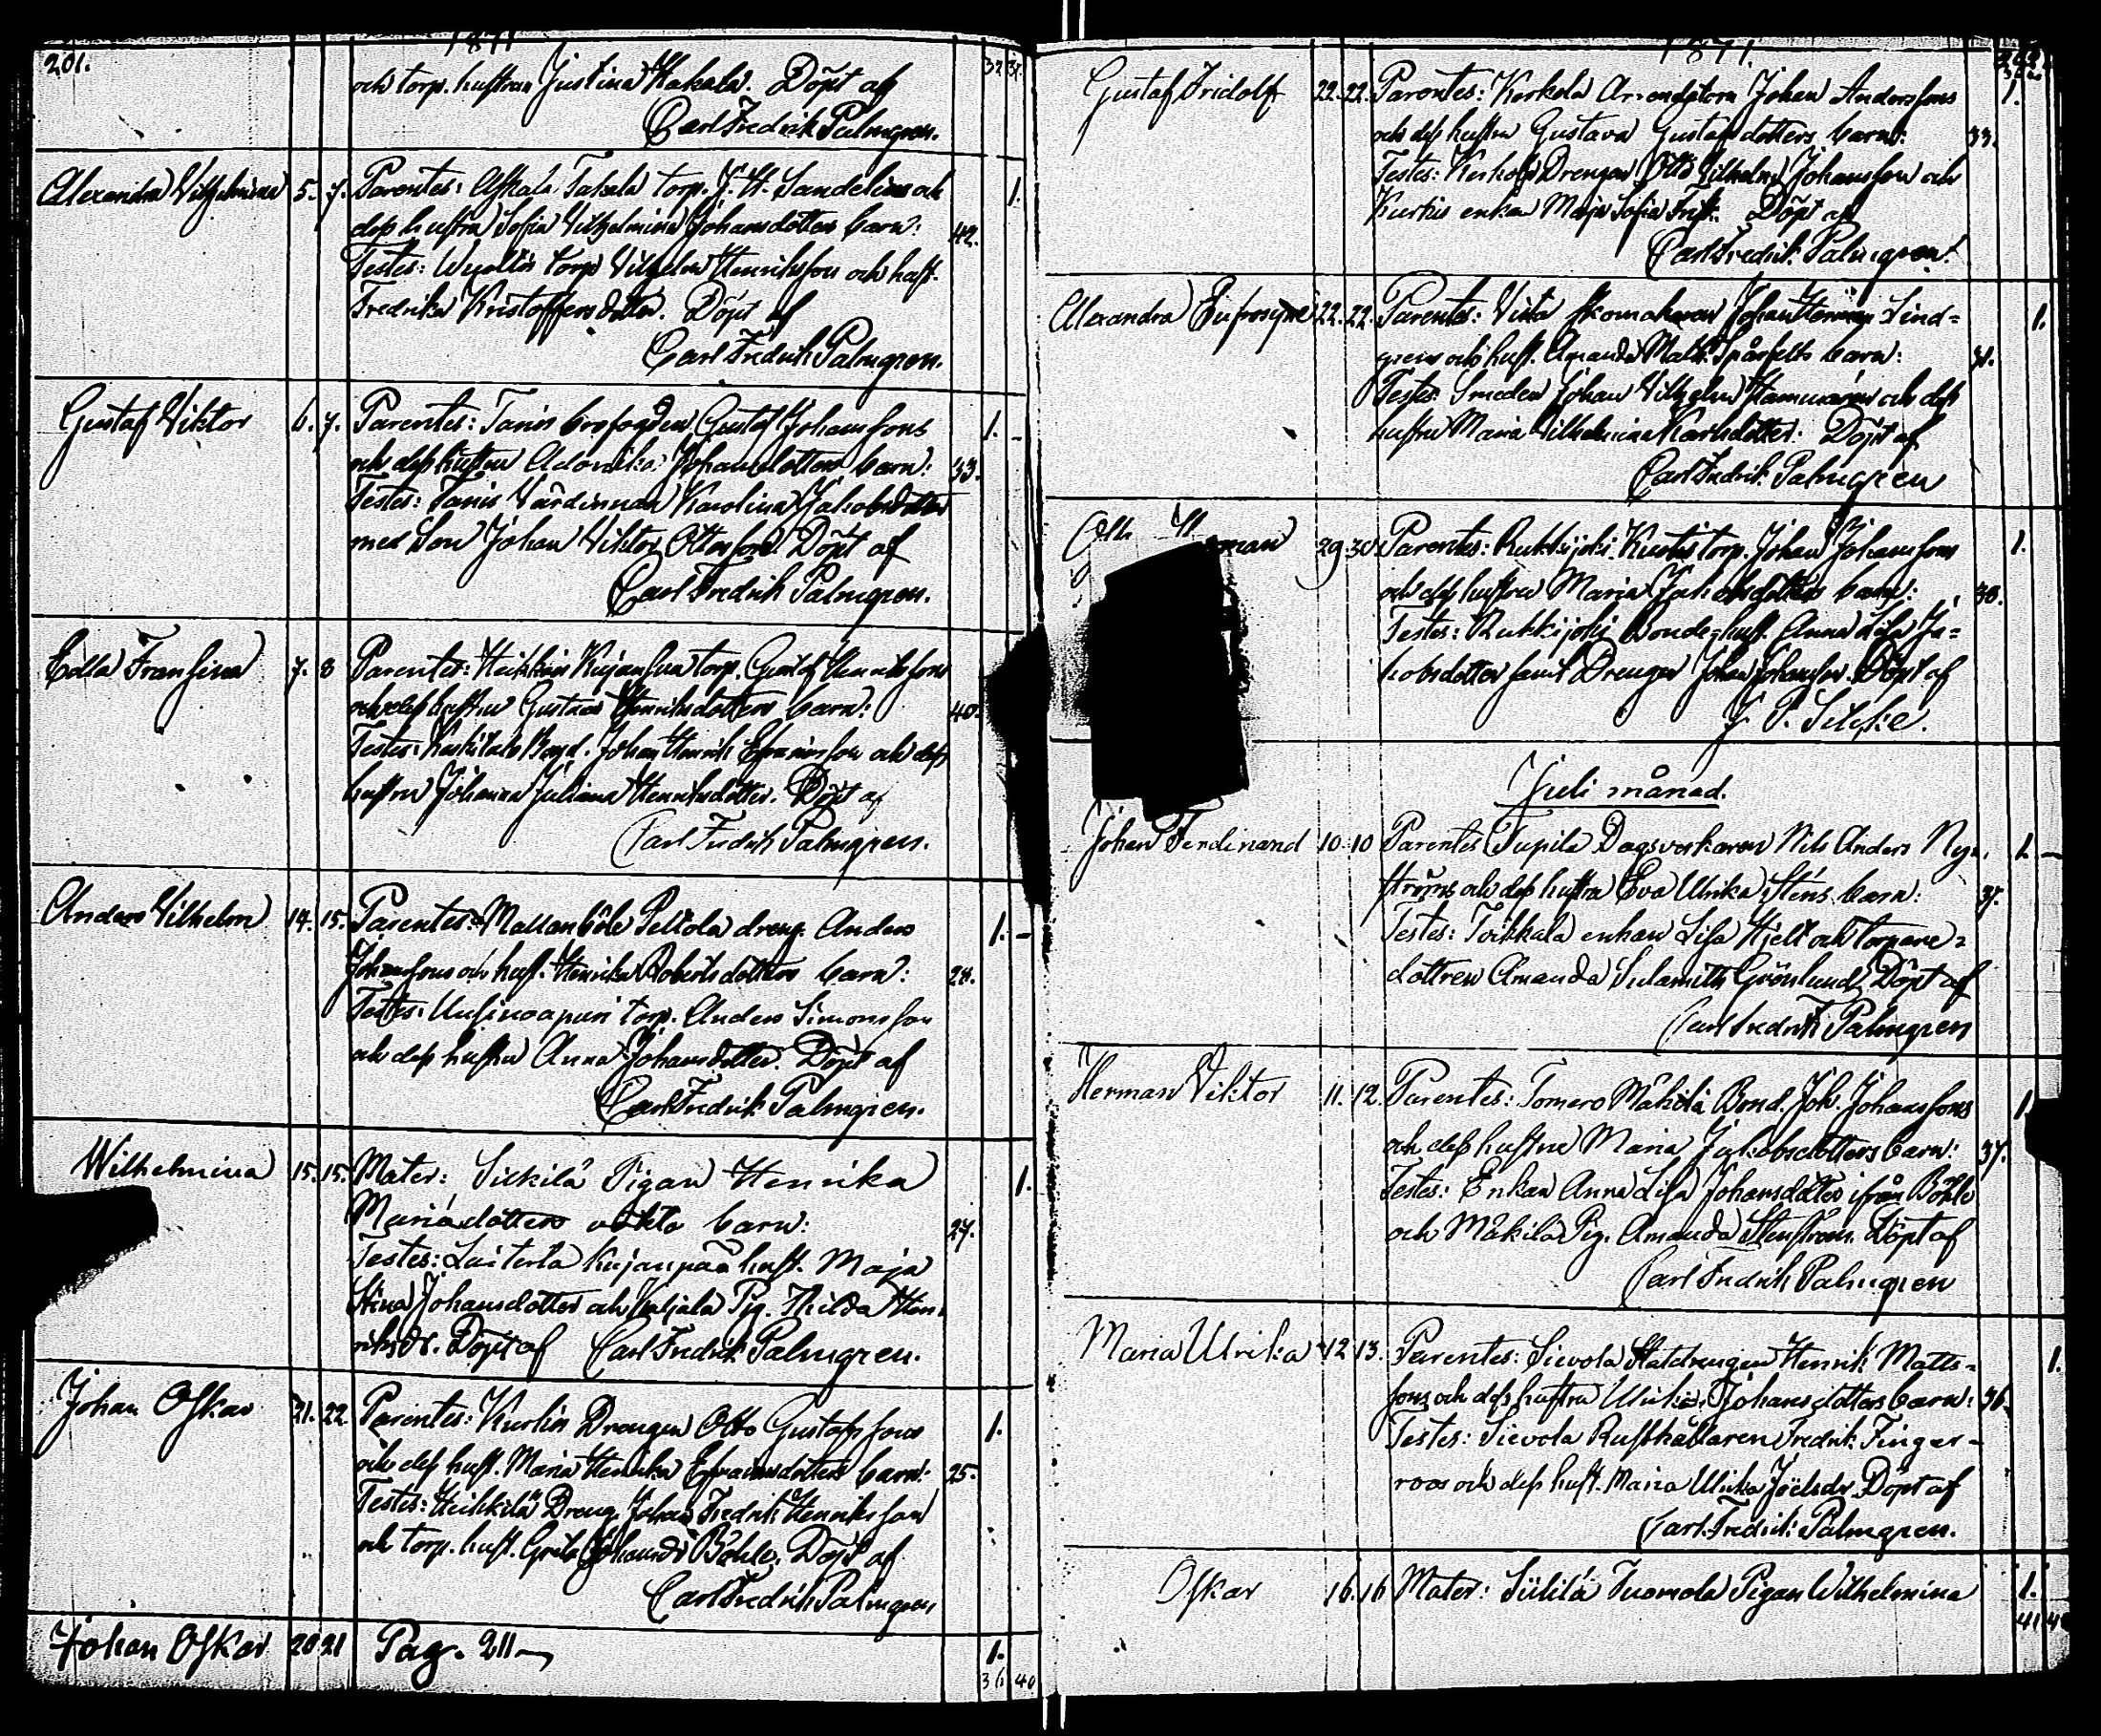 201.
1871
32 37.
och torp. hustrun Justina Hakala. Döpt af
Carl Fredrik Palmgren.
Alexandra Vilhelmina 5. 7. Parentes: Askala Takala torp. J. H. Sandelius och 1.
dess hustru Sofia Vilhelmina Johansdotters barn: 42.
Testes: torp. Vilhelm Henriksson och hust.
Fredrika Kristoffersdotter. Döpt af
Carl Fredrik Palmgren.
Gustaf Viktor 6. 7. Parentes: Tanis Gustaf Johanssons 1.
och dess hustru Johansdotters barn: 33.
Testes: Tanis Värdinnan Karolina Jakobsdotter
med Son Johan Viktor Ottosson. Döpt af
Carl Fredrik Palmgren.
Edla Fransina 7. 8 Parentes: torp. Gustaf Henrikssons
och dess hustru Gustava Henriksdotters barn: 40.
Testes: Bond. Johan Henrik Efraimsson och dess
hustru Johanna Juliana Henriksdotter. Döpt af
Carl Fredrik Palmgren.
Anders Vilhelm 14. 15. Parentes: Peltola dreng. Anders 1.
Johanssons och hust. Henrika Robertsdotters barn: 28.
Testes: torp. Anders Simonsson
och dess hustru Anna Johansdotter. Döpt af
Carl Fredrik Palmgren.
Wilhelmina 15. 15. Mater: Pigan Henrika 1.
Mariadotters oäkta barn: 27.
Testes: Kujanpää hust. Maja
Stina Johansdotter och Pig. Hilda Hen-
riksdr. Döpt af Carl Fredrik Palmgren.
Johan Oskar 21. 22. Parentes: Drengen Otto Gustafssons 1.
och dess hust. Maria Henrika Efraimsdotters barn: 25.
Testes: Heikkilä Dreng. Johan Fredrik Henriksson
och torp. hust. Greta Johansdr Böhle. Döpt af
Carl Fredrik Palmgren
Johan Oskar 20 21 Pag. 211 1.
36 40
1871.
Gustaf Fridolf 22. 22. Parentes: Kerkola Arrendatorn Johan Anderssons 1.
och dess hustru Gustava Gustafsdotters barn: 33.
Testes: Drengen Otto Vilhelm Johansson och
Kurkis enkan Maja Sofia Frisk. Döpt af
Carl Fredrik Palmgren.
Alexandra Eufrosyne 22. 22. Parentes: skomakaren Johan Herman Lind- 1.
grens och hust. Amanda Spårfelts barn:
Testes: Smeden Johan Vilhelm och dess
hustru Maria Vilhelmina Karlsdotter. Döpt af
Carl Fredrik Palmgren
29. 30. Parentes: Rukkijoki torp. Johan Johanssons 1.
och dess hustru Maria Jakobsdotters barn: 38.
Testes: Rukkijoki Bonde hust. Anna Lisa Ja-
kobsdotter samt Drengen Johan Johansson. Döpt af
Juli månad.
Johan Ferdinand 10. 10 Parentes: Tupila Dagsverkaren Nils Anders Ny- 1.
ströms och dess hustru Eva Ulrika Stens barn: 37.
Testes: Toikkala enkan Lisa Hjelt och torpare-
dottren Amanda Sulamith Grönlund. Döpt af
Carl Fredrik Palmgren
Herman Viktor 11. 12. Parentes: Tomero Mäkilä Bond. Joh. Johanssons 1.
och dess hustru Maria Jakobsdotters barn: 37.
Testes: Enkan Anna Lisa Johansdotter ifrån Böhle
och Mäkilä Pig. Amanda Stenström. Döpt af
Carl Fredrik Palmgren
Maria Ulrika 12 13. Parentes: Sievola Statdrengen Henrik Matts- 1.
sons och dess hustru Ulrika Johansdotters barn: 36.
Testes: Sievola Rusthållaren Fredrik Finger-
roos och dess hust. Maria Ulrika Joelsdr. Döpt af
Carl Fredrik Palmgren.
Oskar 16. 16 Mater: Tuomola Pigan Wilhelmina 1.
41